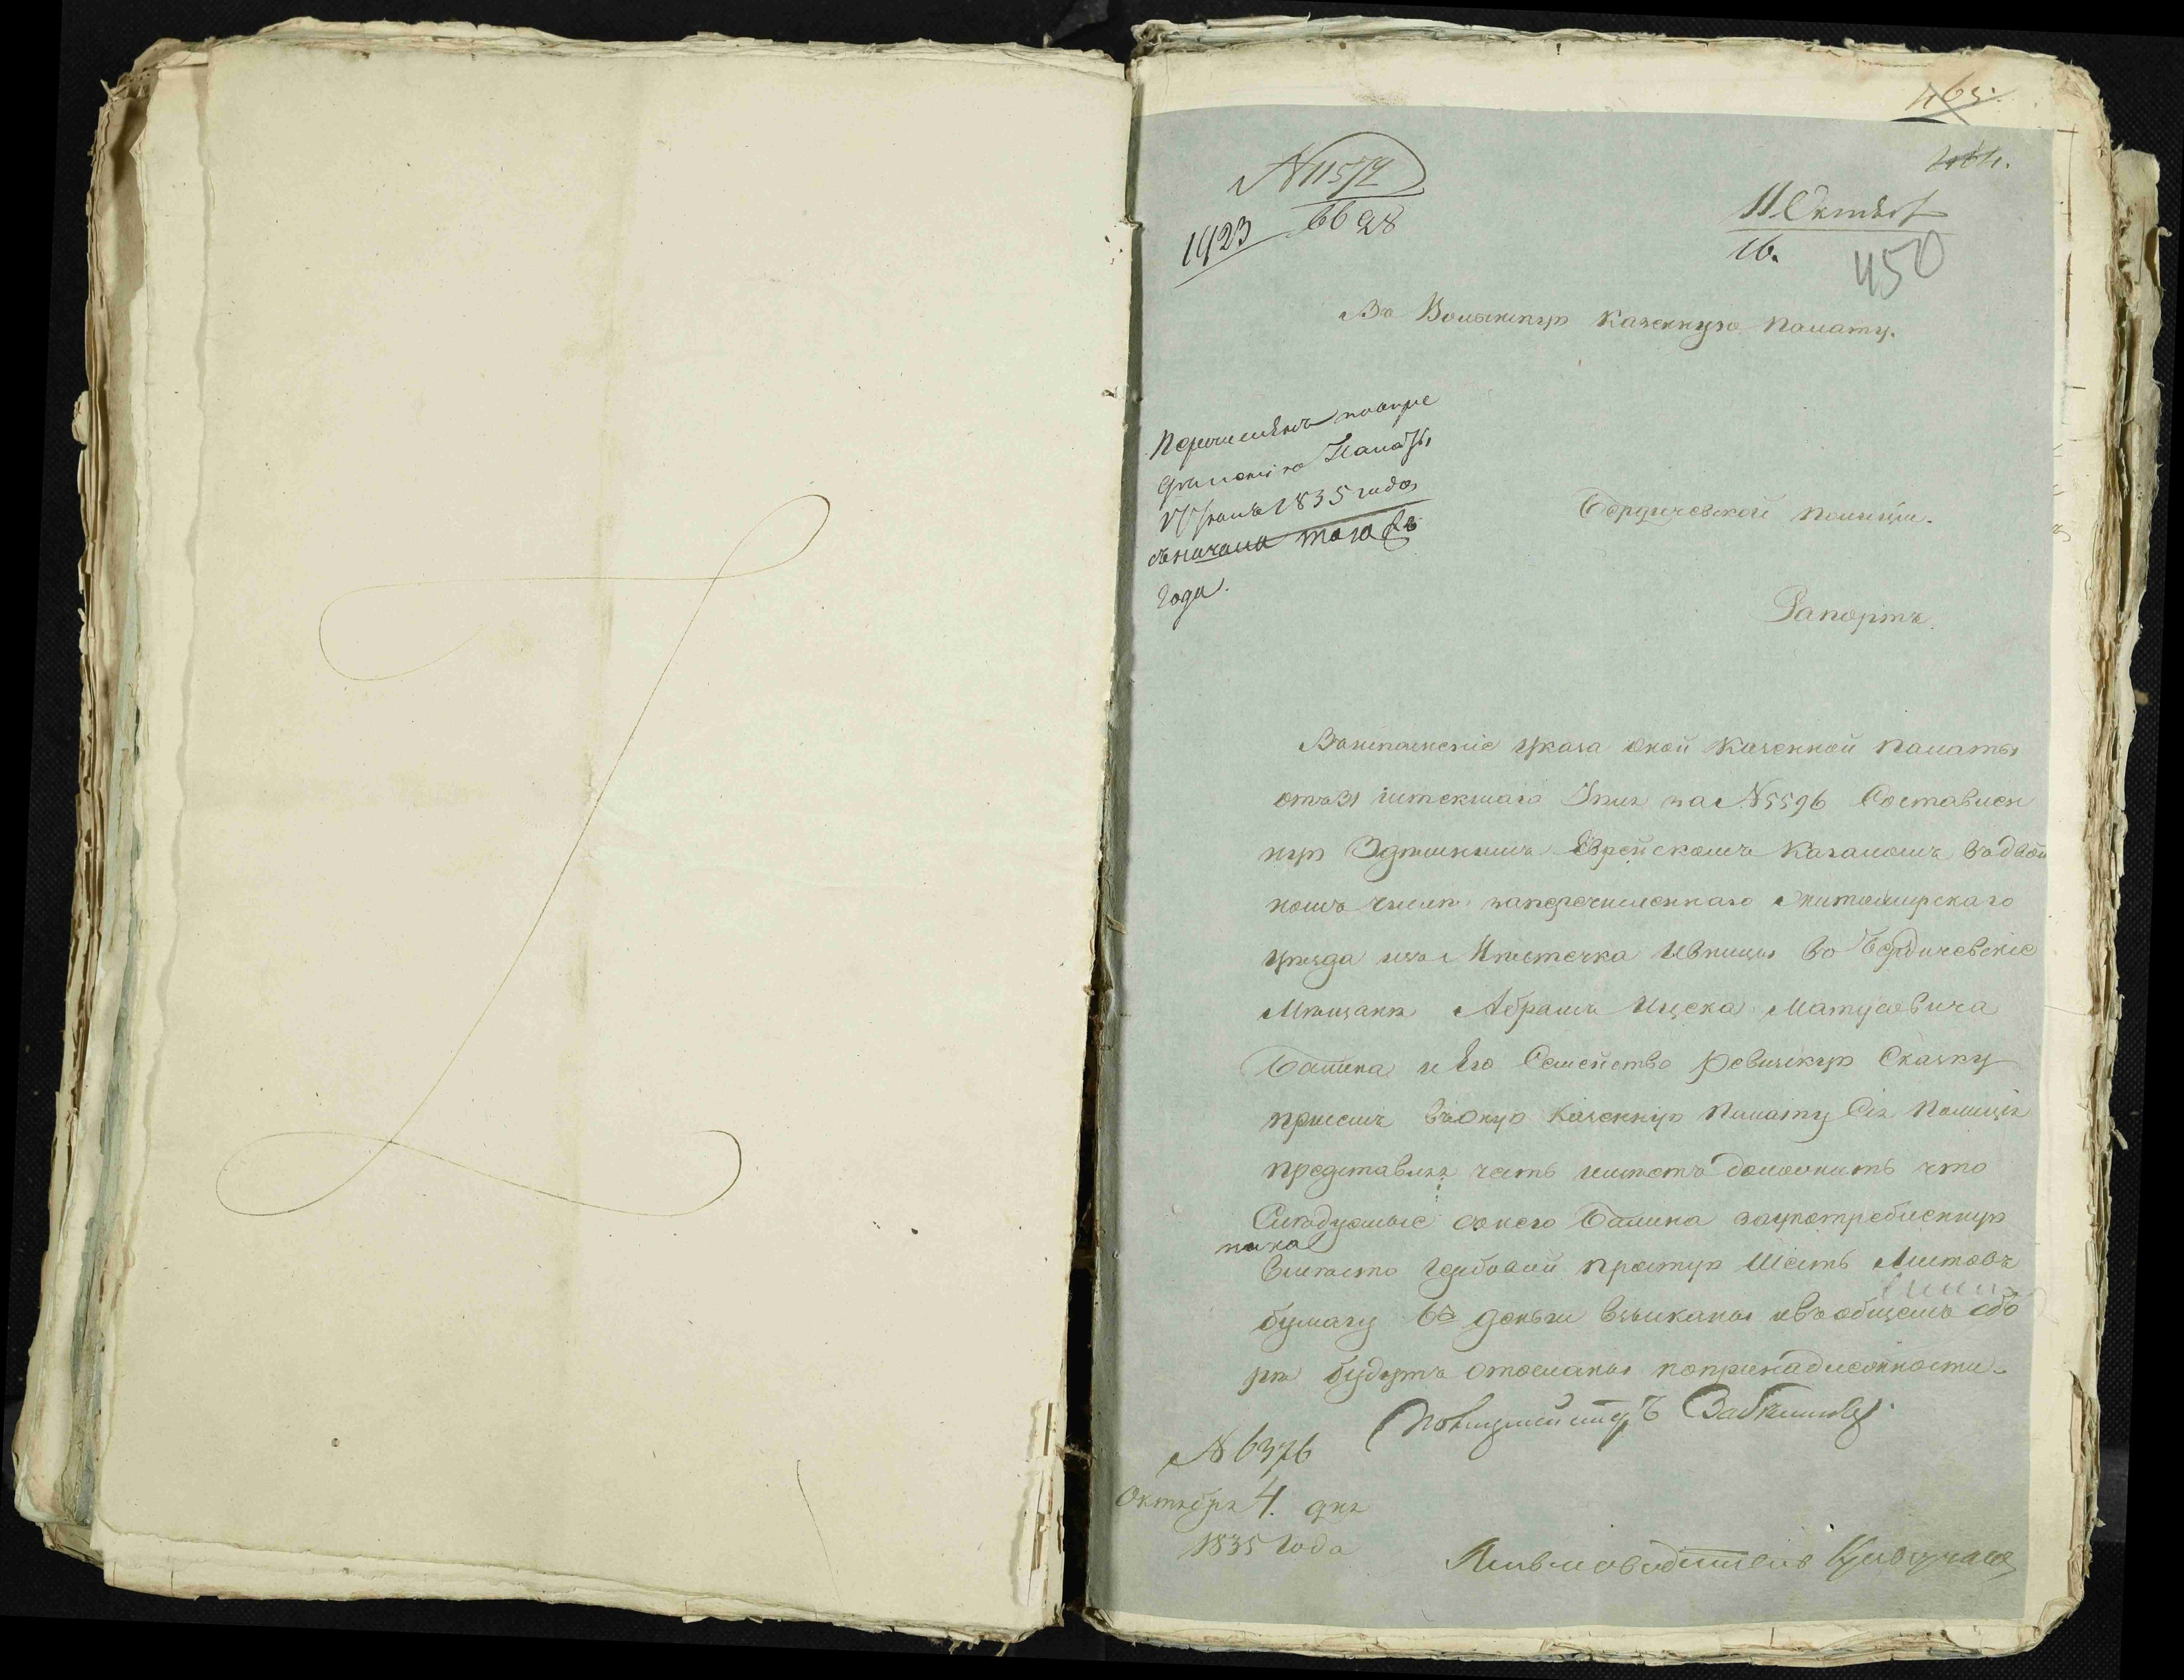 465.
464.
N 11572
6628
1923
11 Октября
16.
450
Въ Волынскую Казенную Палату.
Перечисленъ по опре
дѣленію Палаты
1835 года
съ начала того же
года.
Бердичевской Полиціи.
Рапортъ.
Во исполненіе Указа оной Казенной Палаты
отъ 31 истекшаго за N 5596 Составлен
ную Здѣшнимъ Еврейскимъ Кагаломъ в двой
номъ числѣ на перечисленнаго Житомирскаго
уѣзда изъ Мѣстечка Ивницы въ Бердичевскіе
Мѣщане Абрамъ Ицека Матусовича
и Его Семейство Ревизскую Сказку
при семъ въ оную Казенную Палату Сія Полиція
представляя честь имѣетъ донести что
Слѣдуемые съ него за употребленную
вмѣсто гербовой простую Шесть Листовъ
бумагу деньги взысканы и въ общемъ сбо
рѣ будутъ отосланы по принадлежности.
Полицмейстеръ
N 6376
Октября 4. дня
1835 Года
Письмоводитель